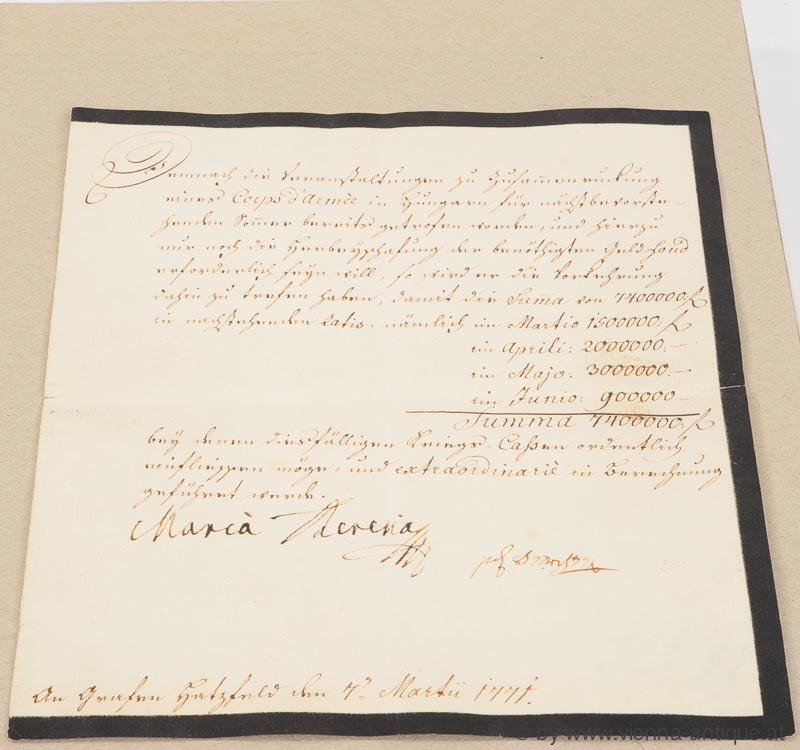 Demnach die Veranstaltungen zu Zusammenruckung
eines Corps d'Armèe in Hungarn für nächstbevorste-
henden Sommer bereits getrofen worden, und hierzu
nur noch die Herbeyschafung der benöthigten Geld fond
erforderlich seyn will, so wird er die Vorkehrung
dahin zu trefen haben, damit die Suma von 7400000. f
in nachstehenden Ratis. nämlich in Martio 1500000. f
in Aprili: 2000000. —
in Majo: 3000000. —
in Junio: 900000 —
Summa 7400000. f
bey denen diesfälligen Kriegs-Caßen ordentlich
einfliessen möge, und extraordinariè in Berechnung
geführet werde.
Maria Theresia
An Grafen Hatzfeld den 7ᵗ Martii 1771.
© by www.vienna-abtique.at